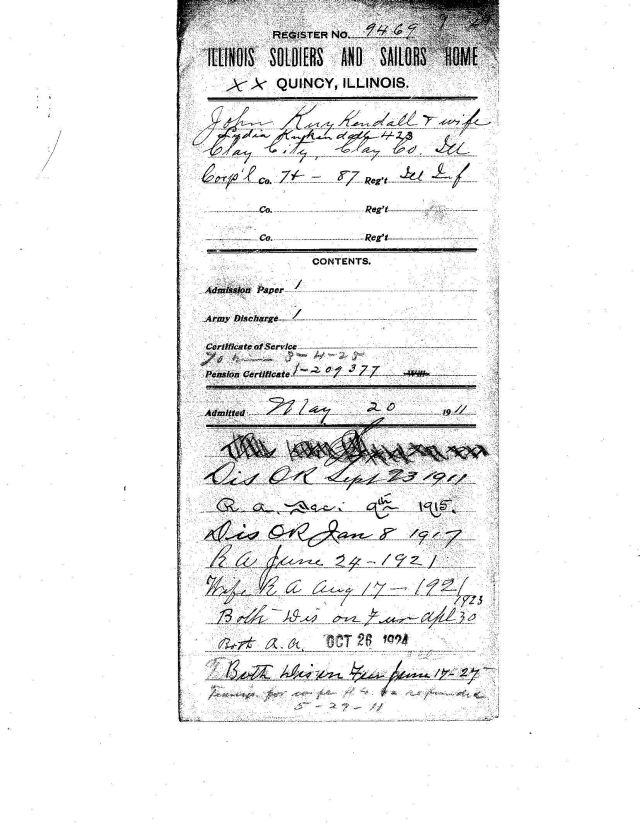 REGISTER NO. 9469
ILLINOIS SOLDIERS AND SAILORS HOME
XX QUINCY, ILLINOIS.
John Kuykendall & wife
Lydia Kuykendall 423
Clay City, Clay Co. Ill
Corp'l Co. 7t - 87 Reg't Ill Inf
Co. Reg't
Co. Reg't
CONTENTS.
Admission Paper 1
Army Discharge 1
Certificate of Service
3-4-25
Pension Certificate 1-209377 Will
Admitted May 20 1911
Dis OR Sept 23 1911
R. a. Dec. 9th 1915.
Dis OR Jan 8 1917
R A June 24-1921
Wife R A Aug 17-1921
1923
Both Dis on Fur Apl 30
Both a. a. OCT 26 1924
Both Dis on Fur June 17-27
5-29-11